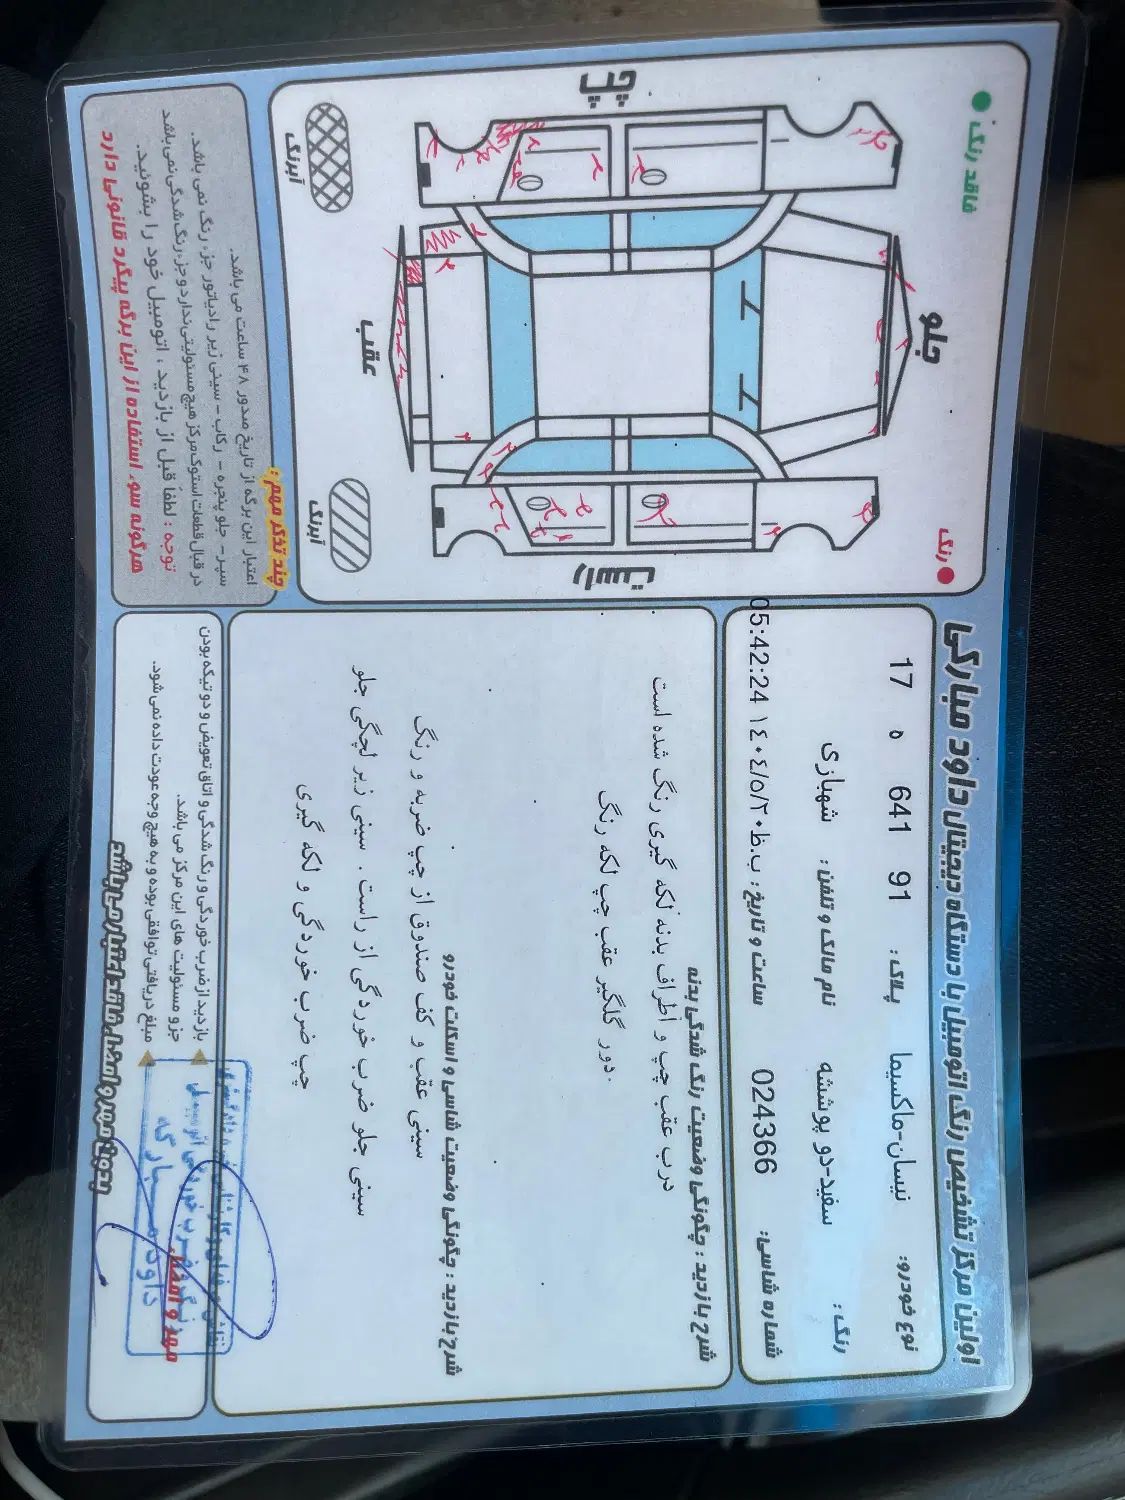 اولین مرکز تشخیص رنگ اتومبیل با دستگاه دیجیتال داود مبارکی
نوع خودرو: نیسان-ماکسیما
پلاک: 91 641 ه 17
رنگ: سفید-دو پوششه
نام مالک و تلفن: شهبازی
شماره شاسی: 024366
ساعت و تاریخ: ب.ظ ١٤٠٤/٥/٢٠ 05:42:24
شرح بازدید: چگونگی وضعیت رنگ شدگی بدنه
درب عقب چپ و اطراف بدنه لکه گیری رنگ شده است
دور گلگیر عقب چپ لکه رنگ
شرح بازدید: چگونگی وضعیت شاسی و اسکلت خودرو
سینی عقب و کف صندوق از چپ ضربه و رنگ
سینی جلو ضرب خوردگی از راست . سینی زیر لچگی جلو
چپ ضرب خوردگی و لکه گیری
بازدید از ضرب خوردگی و رنگ شدگی و اتاق تعویض و دو تیکه بودن
جزو مسئولیت های این مرکز می باشد.
مبلغ دریافتی توافقی بوده و به هیچ وجه عودت داده نمی شود.
بدون مهر و امضا، فاقد اعتبار می باشد
مهر و امضا:
فاقد رنگ
رنگ
جلو
چپ
راست
عقب
آبرنگ
آبرنگ
چند تذکر مهم:
اعتبار این برگه از تاریخ صدور ۴۸ ساعت می باشد.
سپر - جلو پنجره - رکاب - سینی زیر رادیاتور جزء رنگ نمی باشد.
در قبال قطعات استوک مرکز هیچ مسئولیتی ندارد و جزء رنگ شدگی نمی باشد
توجه: لطفاً قبل از بازدید، اتومبیل خود را بشوئید.
هرگونه سوء استفاده از این برگه پیگرد قانونی دارد